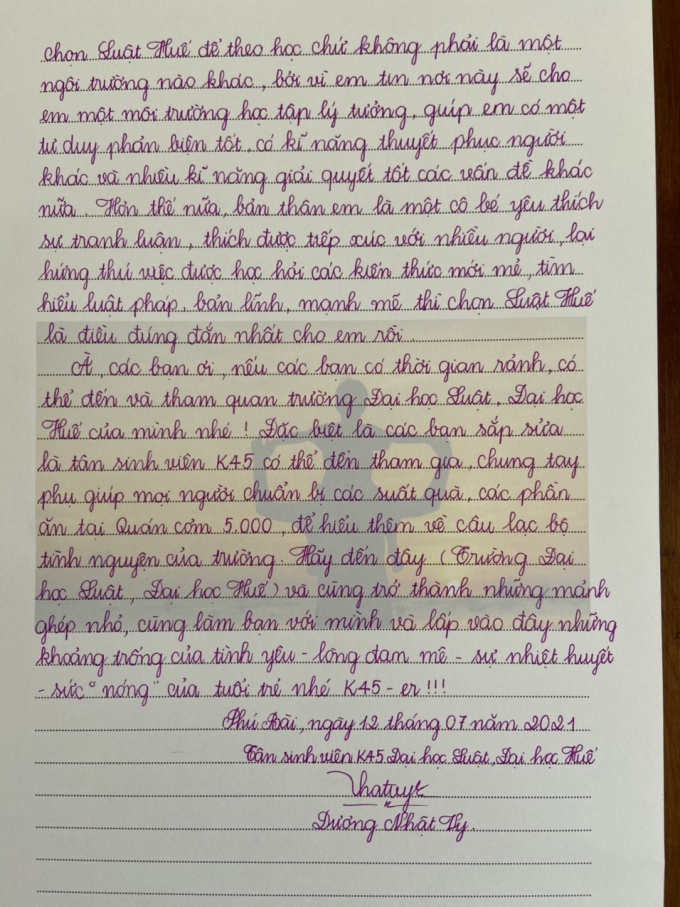 chọn Luật Huế để theo học chứ không phải là một
ngôi trường nào khác, bởi vì em tin nơi này sẽ cho
em một môi trường học tập lý tưởng, giúp em có một
tư duy phản biện tốt, có kĩ năng thuyết phục người
khác và nhiều kĩ năng giải quyết tốt các vấn đề khác
nữa. Hơn thế nữa, bản thân em là một cô bé yêu thích
sự tranh luận, thích được tiếp xúc với nhiều người, lại
hứng thú việc được học hỏi các kiến thức mới mẻ, tìm
hiểu luật pháp, bản lĩnh, mạnh mẽ thì chọn Luật Huế
là điều đúng đắn nhất cho em rồi.
À, các bạn ơi, nếu các bạn có thời gian rảnh, có
thể đến và tham quan trường Đại học Luật, Đại học
Huế của mình nhé! Đặc biệt là các bạn sắp sửa
là tân sinh viên K45 có thể đến tham gia, chung tay
phụ giúp mọi người chuẩn bị các suất quà, các phần
ăn tại Quán cơm 5.000, để hiểu thêm về câu lạc bộ
tình nguyện của trường. Hãy đến đây (Trường Đại
học Luật, Đại học Huế) và cùng trở thành những mảnh
ghép nhỏ, cùng làm bạn với mình và lấp vào đây những
khoảng trống của tình yêu - lòng đam mê - sự nhiệt huyết
- sức "nóng" của tuổi trẻ nhé K45 - er!!!
Phú Bài, ngày 12 tháng 07 năm 2021
Tân sinh viên K45 Đại học Luật, Đại học Huế
Dương Nhật Vy.